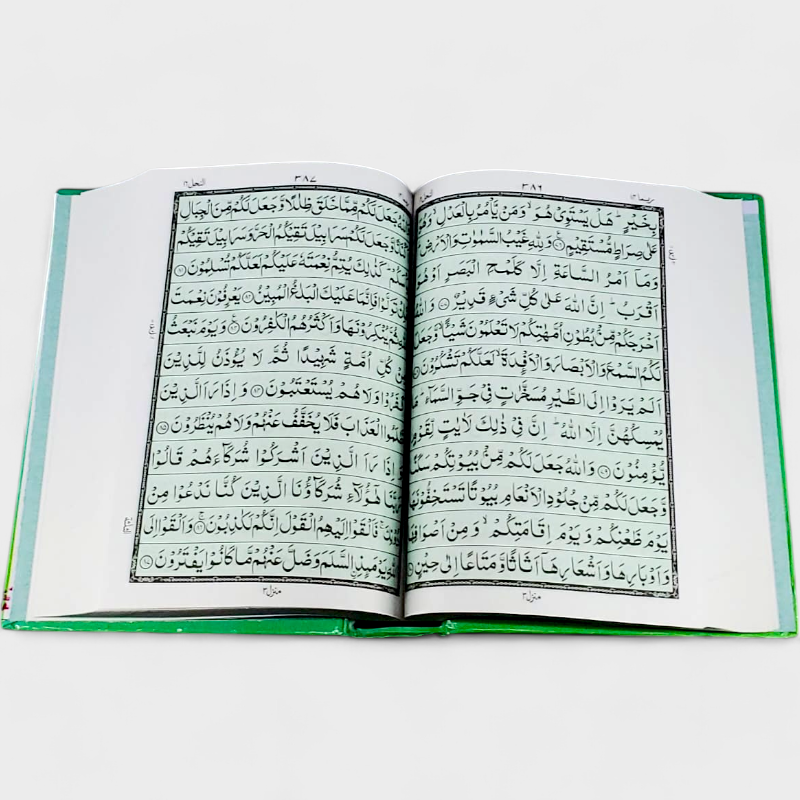 ربما ١٤
٣٨٦
بِخَيْرٍ ؕ هَلْ يَسْتَوِيْ هُوَ ۙ وَ مَنْ يَّاْمُرُ بِالْعَدْلِ ۙ وَ
عَلٰى صِرَاطٍ مُّسْتَقِيْمٍ وَ لِلّٰهِ غَيْبُ السَّمٰوٰتِ وَ الْاَرْضِ
وَ مَاۤ اَمْرُ السَّاعَةِ اِلَّا كَلَمْحِ الْبَصَرِ اَوْ
اَقْرَبُ ؕ اِنَّ اللّٰهَ عَلٰى كُلِّ شَيْءٍ قَدِيْرٌ وَ اللّٰهُ
اَخْرَجَكُمْ مِّنْۢ بُطُوْنِ اُمَّهٰتِكُمْ لَا تَعْلَمُوْنَ شَيْـًٔا ۙ وَّ جَعَلَ
لَكُمُ السَّمْعَ وَ الْاَبْصَارَ وَ الْاَفْـِٕدَةَ ۙ لَعَلَّكُمْ تَشْكُرُوْنَ
اَلَمْ يَرَوْا اِلَى الطَّيْرِ مُسَخَّرٰتٍ فِيْ جَوِّ السَّمَآءِ ؕ
يُمْسِكُهُنَّ اِلَّا اللّٰهُ ؕ اِنَّ فِيْ ذٰلِكَ لَاٰيٰتٍ لِّقَوْمٍ
يُّؤْمِنُوْنَ ٧٩ وَ اللّٰهُ جَعَلَ لَكُمْ مِّنْۢ بُيُوْتِكُمْ سَكَنًا
وَّ جَعَلَ لَكُمْ مِّنْ جُلُوْدِ الْاَنْعَامِ بُيُوْتًا تَسْتَخِفُّوْنَهَا
يَوْمَ ظَعْنِكُمْ وَ يَوْمَ اِقَامَتِكُمْ ۙ وَ مِنْ اَصْوَافِهَا
وَ اَوْبَارِهَا وَ اَشْعَارِهَاۤ اَثَاثًا وَّ مَتَاعًا اِلٰى حِيْنٍ
منزل ٣
٣٨٧
النحل ١٦
جَعَلَ لَكُمْ مِّمَّا خَلَقَ ظِلٰلًا وَّ جَعَلَ لَكُمْ مِّنَ الْجِبَالِ
وَّ جَعَلَ لَكُمْ سَرَابِيْلَ تَقِيْكُمُ الْحَرَّ وَ سَرَابِيْلَ تَقِيْكُمْ
كَذٰلِكَ يُتِمُّ نِعْمَتَهٗ عَلَيْكُمْ لَعَلَّكُمْ تُسْلِمُوْنَ ٨١
تَوَلَّوْا فَاِنَّمَا عَلَيْكَ الْبَلٰغُ الْمُبِيْنُ ٨٢ يَعْرِفُوْنَ نِعْمَتَ
ثُمَّ يُنْكِرُوْنَهَا وَ اَكْثَرُهُمُ الْكٰفِرُوْنَ ٨٣ وَ يَوْمَ نَبْعَثُ
مِنْ كُلِّ اُمَّةٍ شَهِيْدًا ثُمَّ لَا يُؤْذَنُ لِلَّذِيْنَ
كَفَرُوْا وَ لَا هُمْ يُسْتَعْتَبُوْنَ ٨٤ وَ اِذَا رَاَ الَّذِيْنَ
ظَلَمُوا الْعَذَابَ فَلَا يُخَفَّفُ عَنْهُمْ وَ لَا هُمْ يُنْظَرُوْنَ ٨٥
وَ اِذَا رَاَ الَّذِيْنَ اَشْرَكُوْا شُرَكَآءَهُمْ قَالُوْا
رَبَّنَا هٰۤؤُلَآءِ شُرَكَآؤُنَا الَّذِيْنَ كُنَّا نَدْعُوْا مِنْ
فَاَلْقَوْا اِلَيْهِمُ الْقَوْلَ اِنَّكُمْ لَكٰذِبُوْنَ ٨٦ وَ اَلْقَوْا اِلَى
يَوْمَىِٕذِ اِ۟لسَّلَمَ وَ ضَلَّ عَنْهُمْ مَّا كَانُوْا يَفْتَرُوْنَ ٨٧
منزل ٣